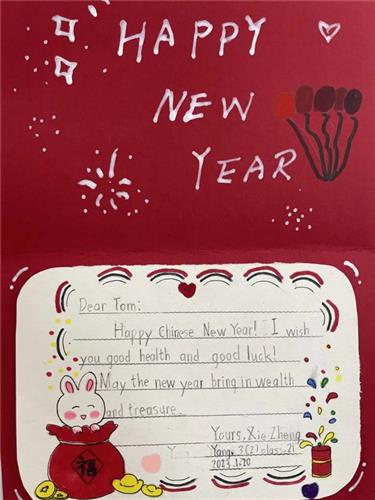 HAPPY
NEW
YEAR
Dear Tom:
Happy Chinese New Year! I wish
you good health and good luck!
May the new year bring in wealth
and treasure.
Yours, Xie Zheng
Yang, 3(2) class, 21
2023.1.20
福